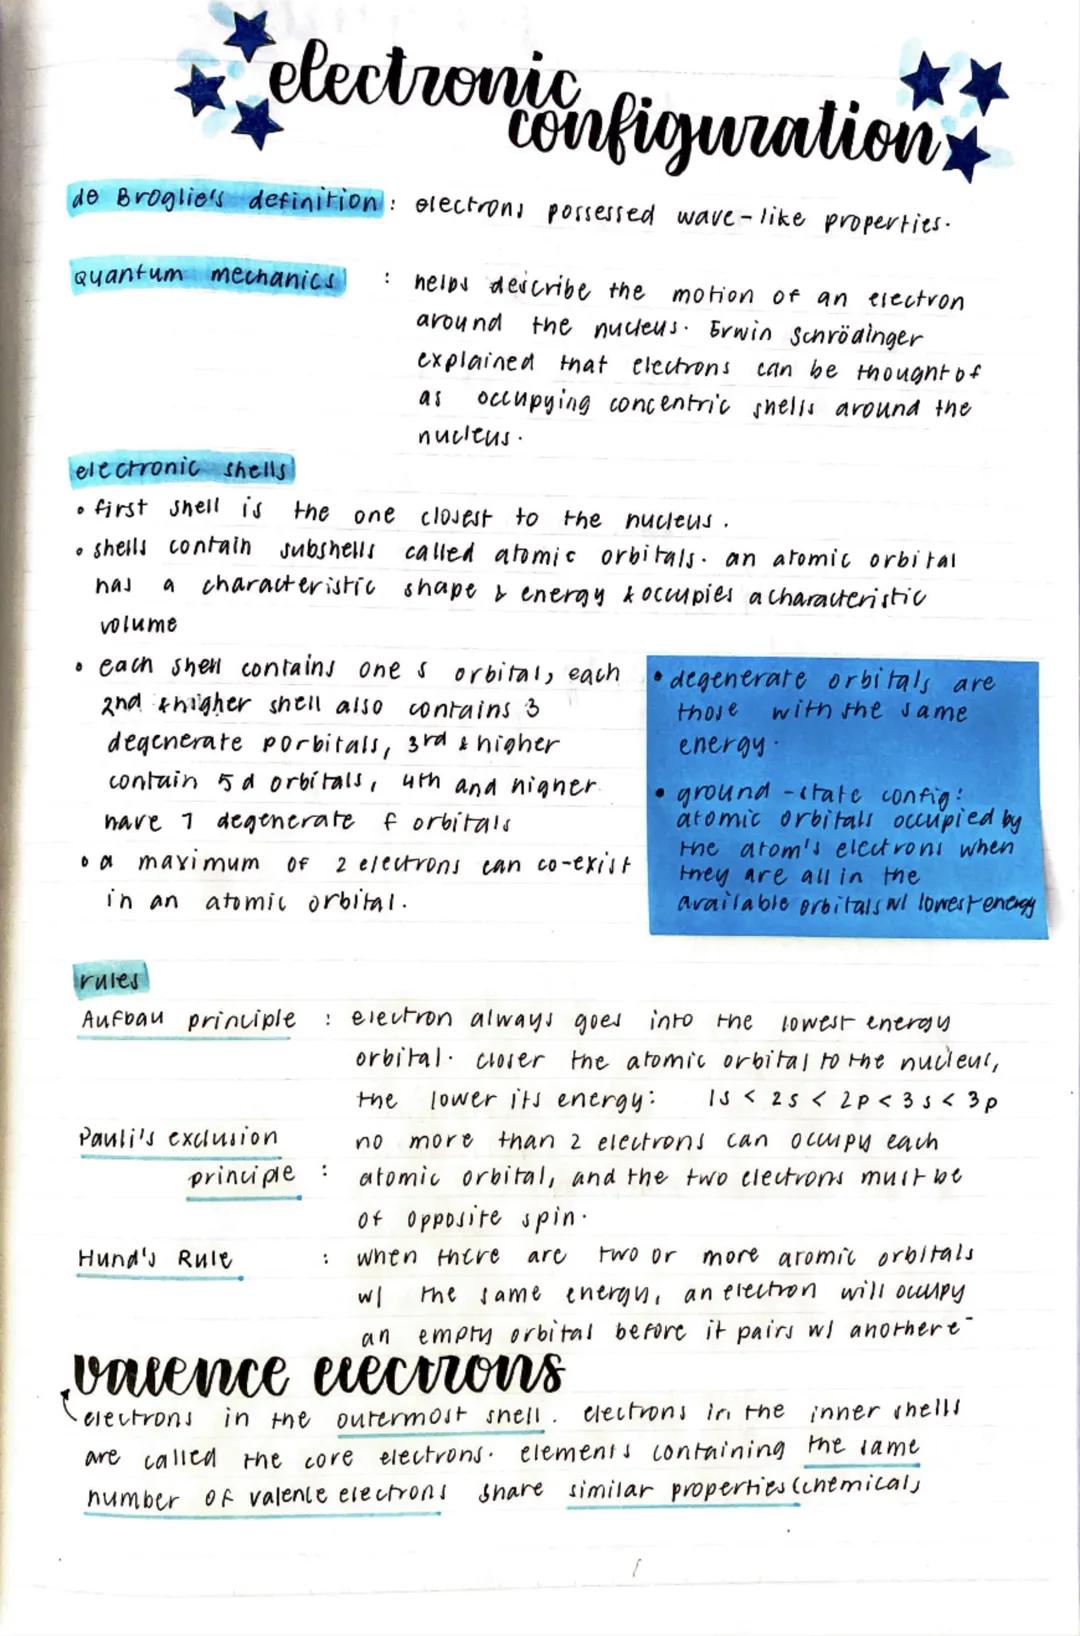 electronic
configuration
de Broglie's definition : electrons possessed wave-like properties.
Quantum mechanics : helps describe the motion of an electron
around the nucleus. Erwin Schrödinger
explained that electrons can be thought of
as occupying concentric shells around the
nucleus.
electronic shells
• first shell is the one closest to the nucleus.
• shells contain subshells called atomic orbitals. an atomic orbital
has a characteristic shape & energy & occupies a characteristic
volume
• each shell contains one s orbital, each
2nd & higher shell also contains 3
degenerate p orbitals, 3rd & higher
contain 5 d orbitals, 4th and higher
have 7 degenerate f orbitals
• a maximum of 2 electrons can co-exist
in an atomic orbital.
• degenerate orbitals are
those with the same
energy.
• ground-state config:
atomic orbitals occupied by
the atom's electrons when
they are all in the
available orbitals w/ lowest energy
rules
Aufbau principle : electron always goes into the lowest energy
orbital. closer the atomic orbital to the nucleus,
the lower its energy: 1s < 2s < 2p < 3s < 3p
Pauli's exclusion no more than 2 electrons can occupy each
principle : atomic orbital, and the two electrons must be
of opposite spin.
Hund's Rule : when there are two or more atomic orbitals
w/ the same energy, an electron will occupy
an empty orbital before it pairs w/ another e⁻
valence electrons
electrons in the outermost shell. electrons in the inner shells
are called the core electrons. elements containing the same
number of valence electrons share similar properties (chemical)